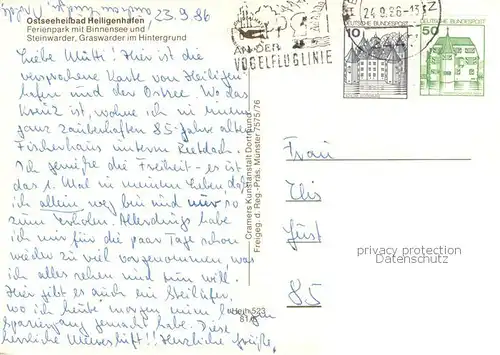 Ostseeheilbad Heiligenhafen
Ferienpark mit Binnensee und
Steinwarder, Graswarder im Hintergrund
23.9.86
Liebe Mutti! Hier ist die
versprochene Karte von Heiligen
hafen und der Ostsee. Wo das
Kreuz ist, wohne ich in einem
ganz zauberhaften 85-Jahre alten
Fischerhaus unterm Reetdach.
Ich genieße die Freiheit - es ist
das 1. Mal in meinem Leben, daß
ich allein weg bin und nur so
zum erholen. Allerdings habe
ich mir für die paar Tage schon
wieder zu viel vorgenommen, was
ich alles sehen und tun will.
Hier gibt es auch ein Steilufer,
wo ich heute morgen einen langen
Spaziergang gemacht habe. Diese
herrliche Meeresluft!! Herzliche Grüße,
Cramers Kunstanstalt Dortmund
Freigeg. d. Reg.-Präs. Münster 7575/76
523
AN DER
VOGELFLUGLINIE
24.9.86-13
Z
10
DEUTSCHE BUNDESPOST
50
DEUTSCHE BUNDESPOST
Frau
85
privacy protection
DATENSCHUTZ